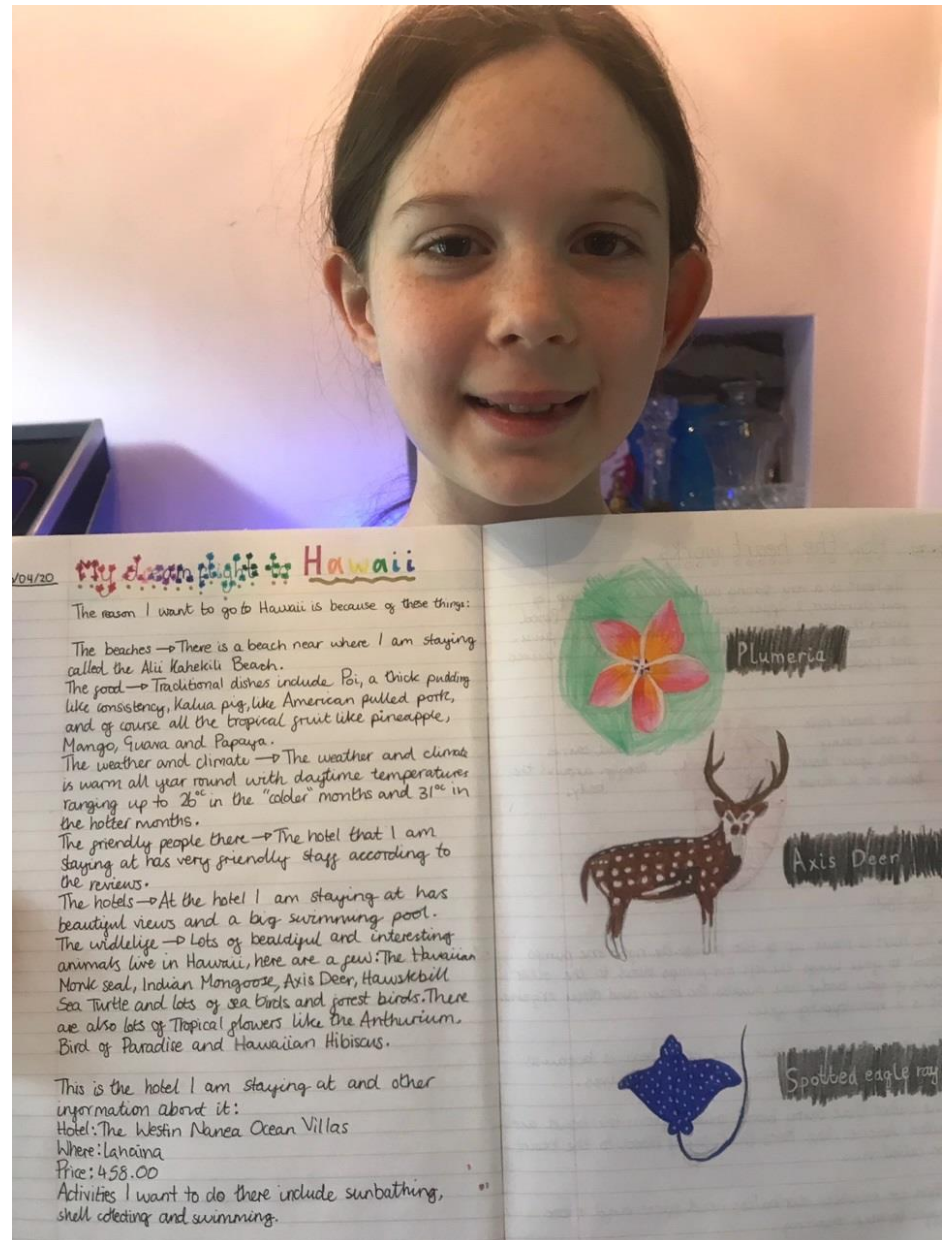 /04/20
My dream flight to Hawaii
The reason I want to go to Hawaii is because of these things:
The beaches → There is a beach near where I am staying
called the Alii Kahekili Beach.
The food → Traditional dishes include Poi, a thick pudding
like consistency, Kalua pig, like American pulled pork,
and of course all the tropical fruit like pineapple,
Mango, Guava and Papaya.
The weather and climate → The weather and climate
is warm all year round with daytime temperatures
ranging up to 26°c in the "colder" months and 31°c in
the hotter months.
The friendly people there → The hotel that I am
staying at has very friendly staff according to
the reviews.
The hotels → At the hotel I am staying at has
beautiful views and a big swimming pool.
The widlelife → Lots of beatdiful and interesting
animals live in Hawaii, here are a few: The Hawaiian
Monk seal, Indian Mongoose, Axis Deer, Hawskbill
Sea Turtle and lots of sea birds and forest birds. There
are also lots of Tropical flowers like the Anthurium,
Bird of Paradise and Hawaiian Hibiscus.
This is the hotel I am staying at and other
information about it:
Hotel: The Westin Nanea Ocean Villas
Where: Lahaina
Price: 458.00
Activities I want to do there include sunbathing,
shell collecting and swimming.
Plumeria
Axis Deer
Spotted eagle ray